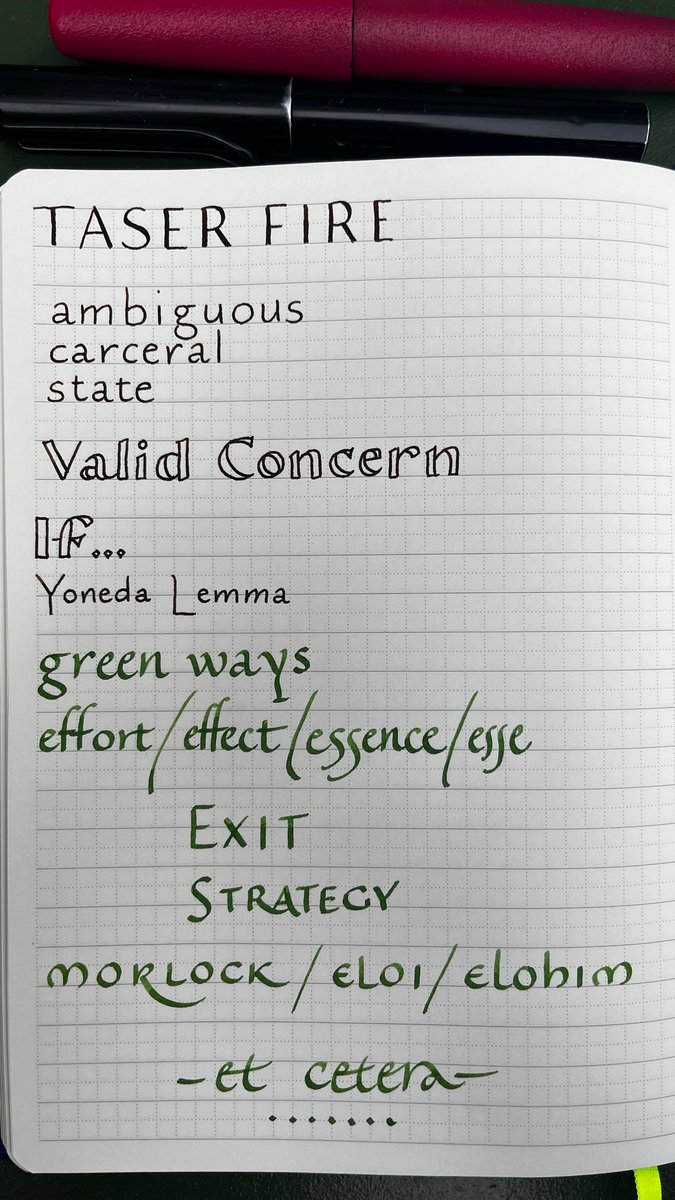 TASER FIRE
ambiguous
carceral
state
Valid Concern
IF...
Yoneda Lemma
green ways
effort/effect/essence/esse
EXIT
STRATEGY
MORLOCK/ELOI/Elohim
-et cetera-
.......